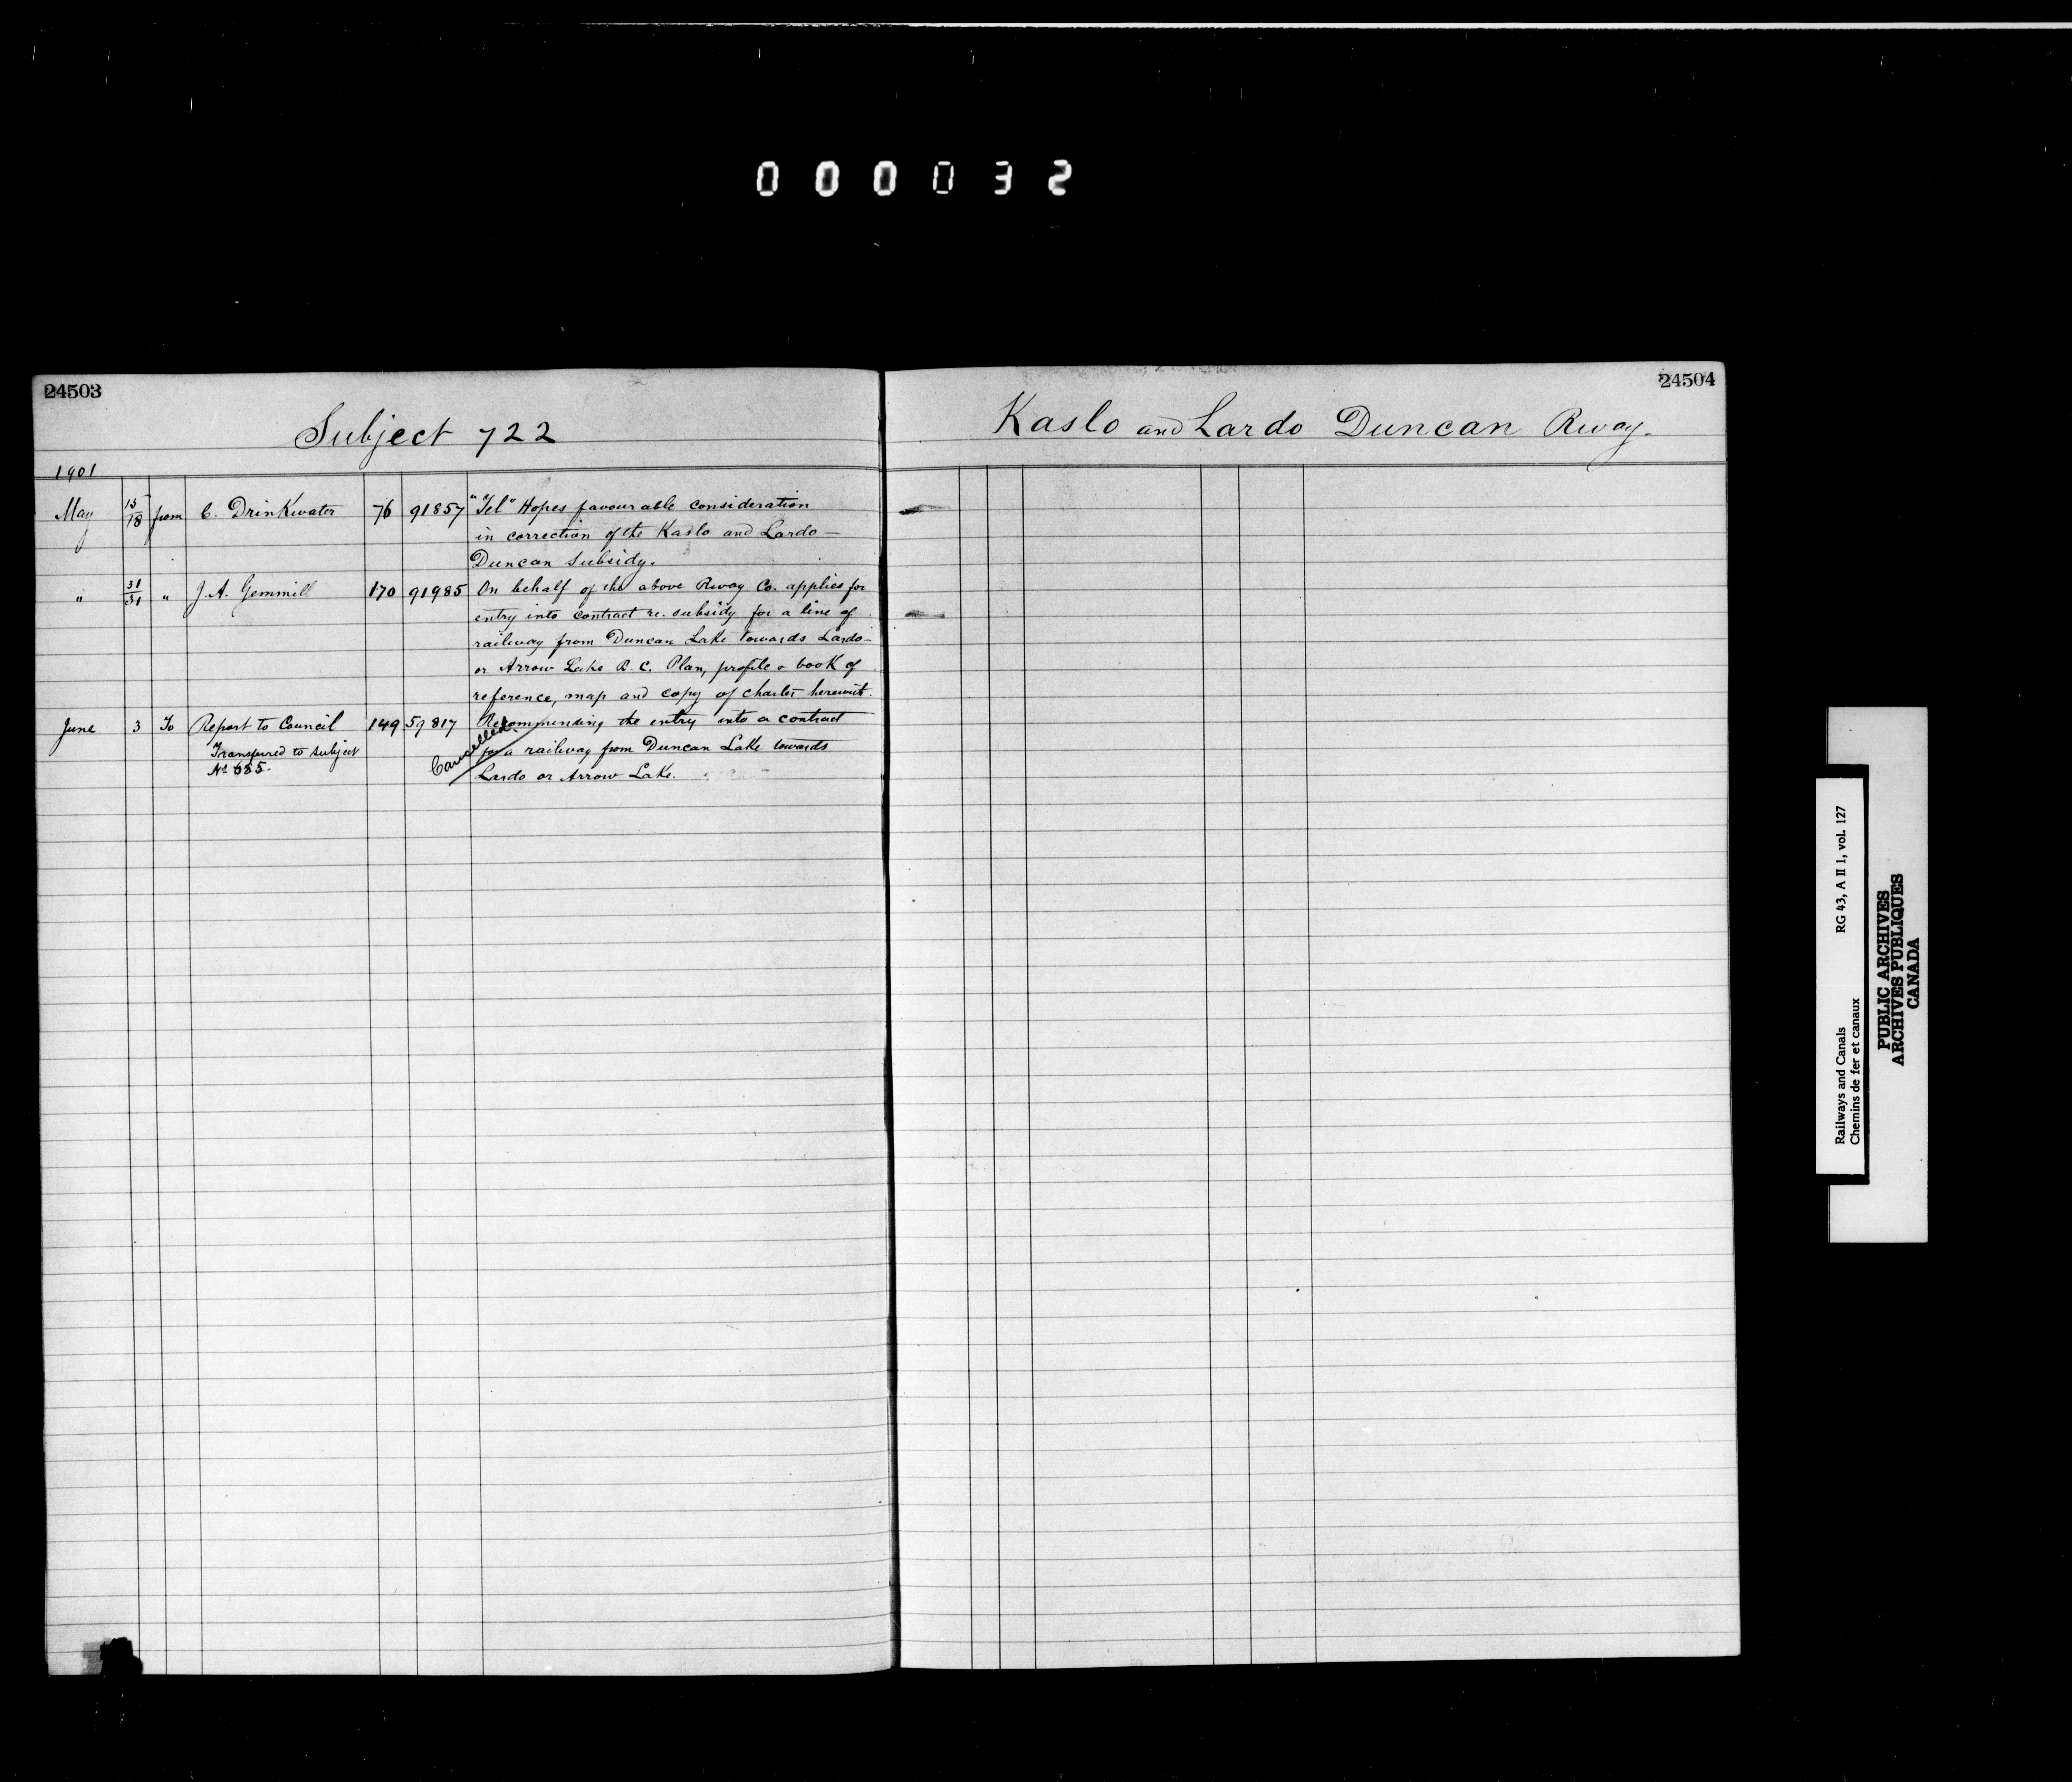 000032
24503
24504
Subject 722
Kaslo and Lardo Duncan Rway.
1901
May 15/18 from C. Drinkwater 76 91857 "Tel" Hopes favourable consideration
in correction of the Kaslo and Lardo –
Duncan Subsidy.
" 31/31 " J. A. Gemmill 170 91985 On behalf of the above Rway Co. applies for
entry into contract re. subsidy for a line of
railway from Duncan Lake towards Lardo –
or Arrow Lake B. C. Plan, profile & book of
reference, map and copy of charter herewith.
June 3 To Report to Council 149 59817 Recommending the entry into a contract
Transfured to subject
No 685.
Cancelled.
for a railway from Duncan Lake towards
Lardo or Arrow Lake.
Railways and Canals RG 43, A II 1, vol. 127
Chemins de fer et canaux
PUBLIC ARCHIVES
ARCHIVES PUBLIQUES
CANADA